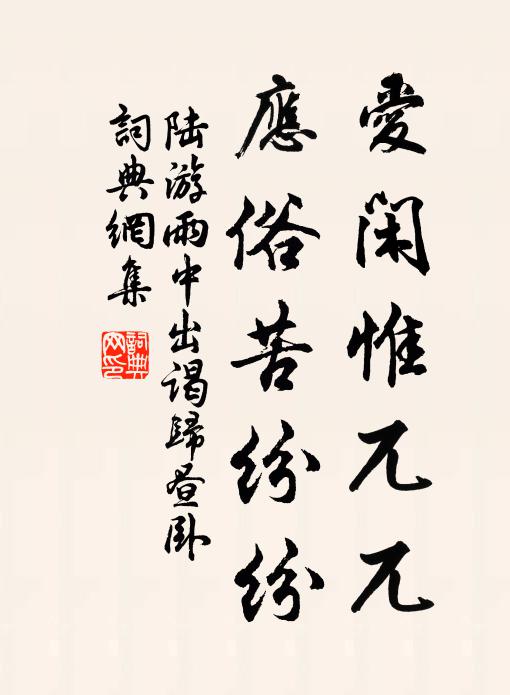 愛閑惟兀兀
應俗苦紛紛
陆游雨中出谒歸昼卧
詞典網集
詞典網印